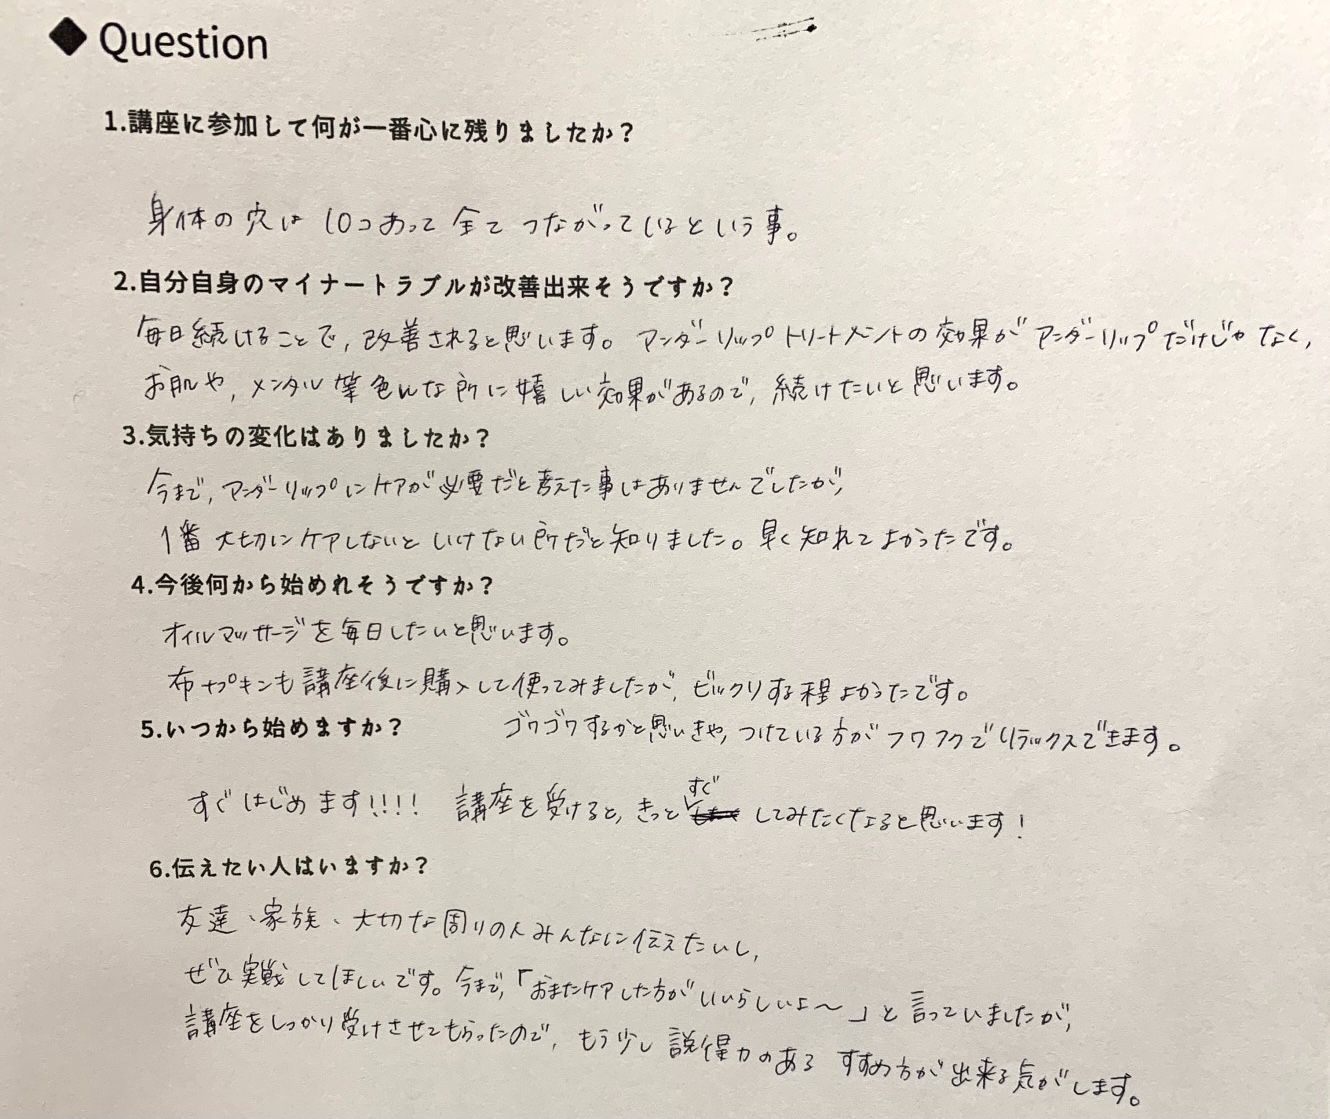 ◆ Question
1.講座に参加して何が一番心に残りましたか？
身体の穴は10コあって全てつながっているという事。
2.自分自身のマイナートラブルが改善出来そうですか？
毎日続けることで、改善されると思います。アンダーリップトリートメントの効果がアンダーリップだけじゃなく、
お肌や、メンタル等色んな所に嬉しい効果があるので、続けたいと思います。
3.気持ちの変化はありましたか？
今まで、アンダーリップにケアが必要だと考えた事はありませんでしたが、
1番大切にケアしないといけない所だと知りました。早く知れてよかったです。
4.今後何から始めれそうですか？
オイルマッサージを毎日したいと思います。
布ナプキンも講座後に購入して使ってみましたが、ビックリする程よかったです。
5.いつから始めますか？
ゴワゴワするかと思いきや、つけている方がフワフワでリラックスできます。
すぐはじめます!!!! 講座を受けると、きっとすぐしてみたくなると思います！
6.伝えたい人はいますか？
友達、家族、大切な周りの人みんなに伝えたいし、
ぜひ実戦してほしいです。今まで、「おまたケアした方がいいらしいよ〜」と言っていましたが、
講座をしっかり受けさせてもらったので、もう少し説得力のあるすすめ方が出来る気がします。